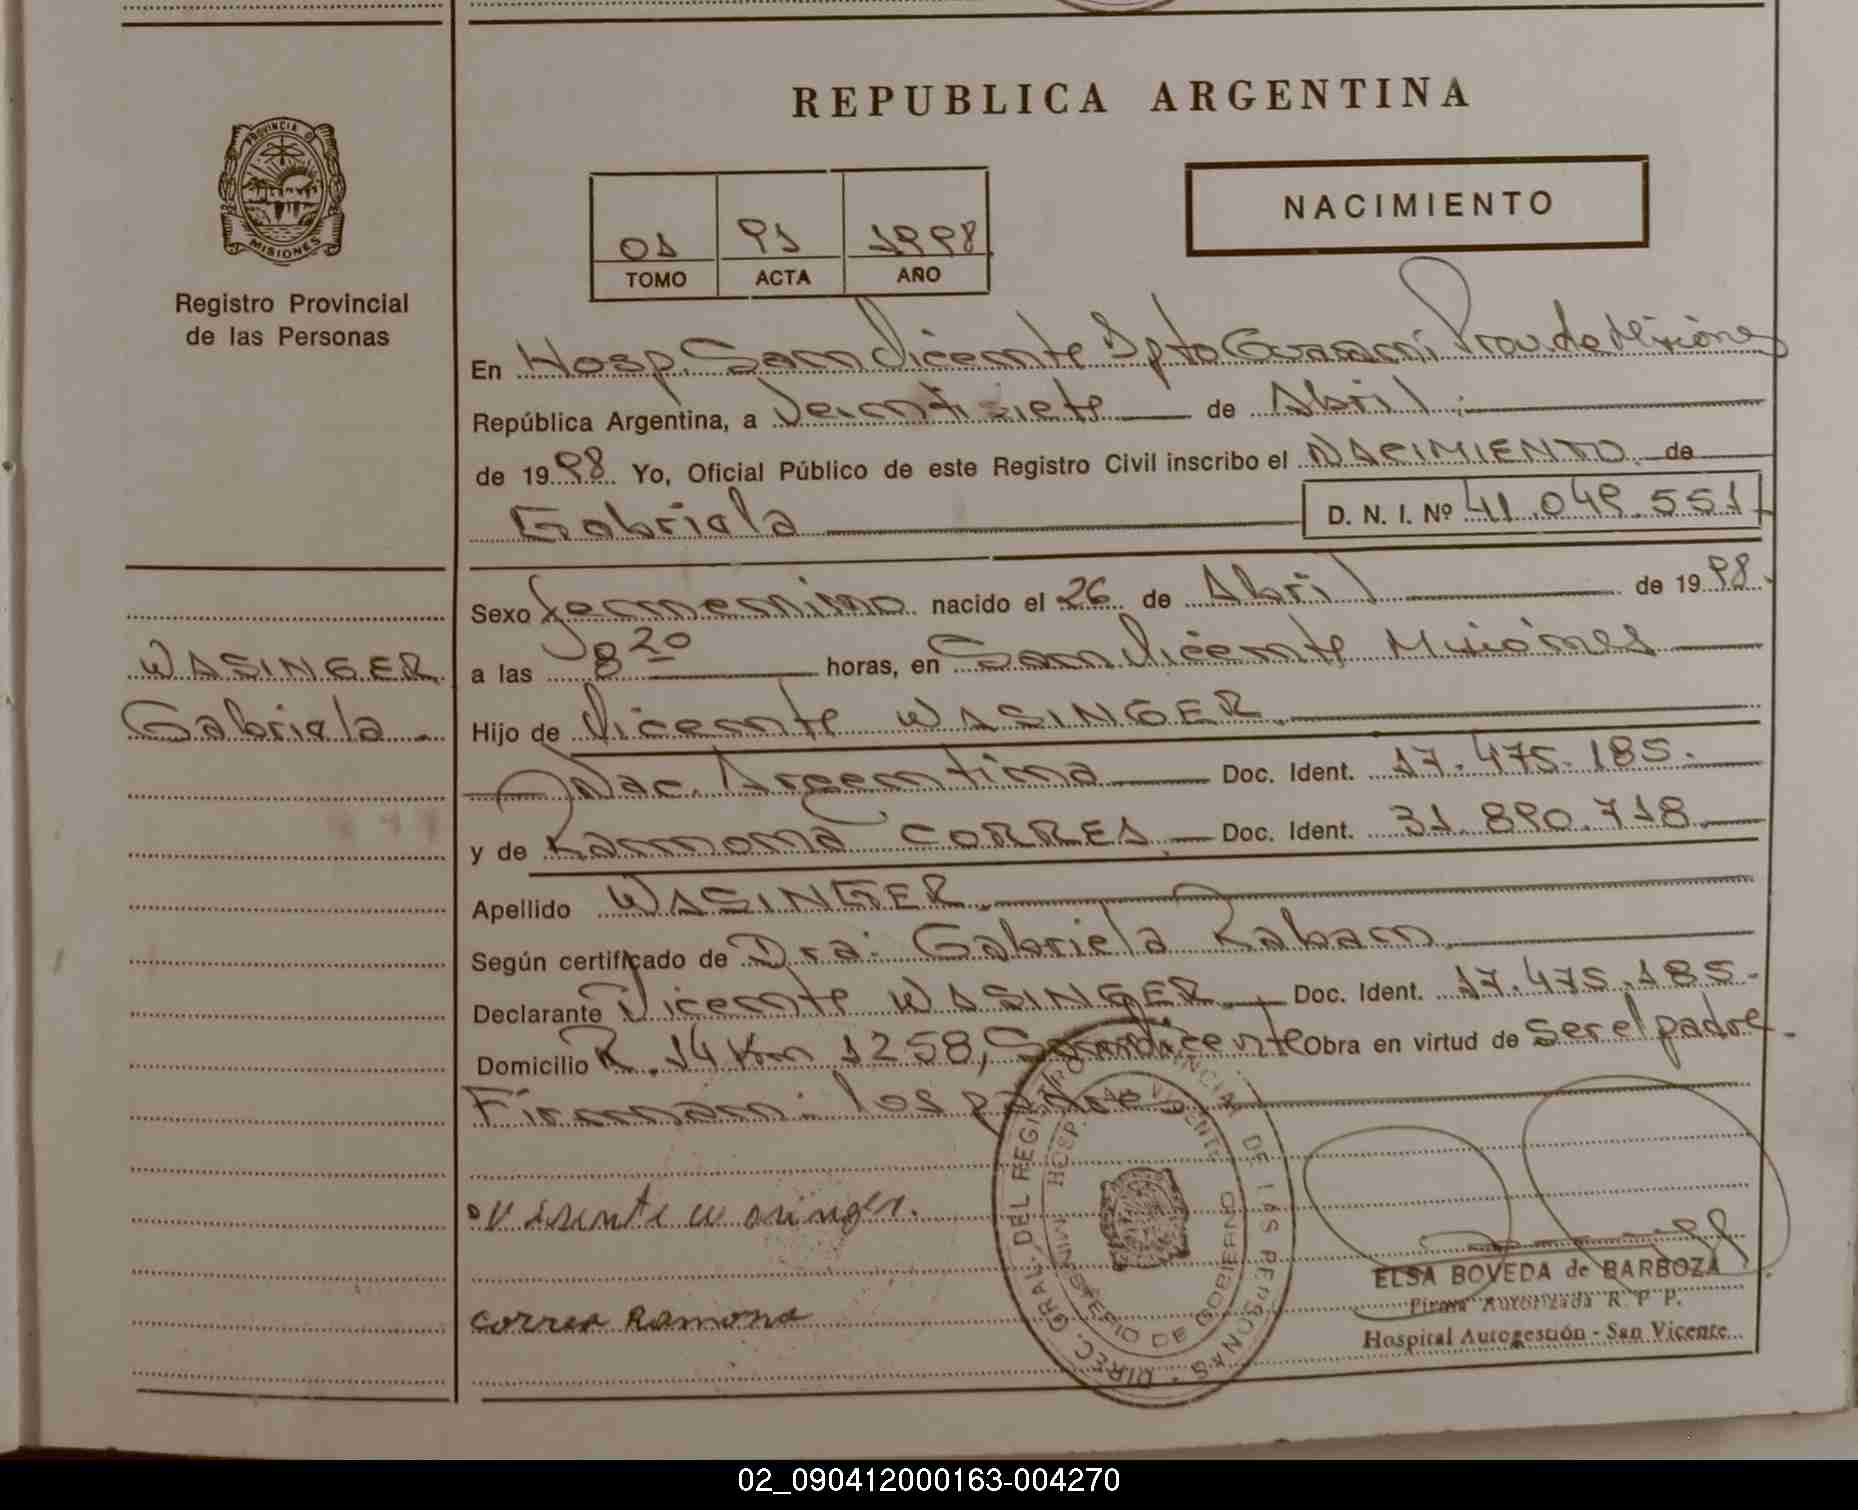 REPUBLICA ARGENTINA
PROVINCIA D
MISIONES
Registro Provincial
de las Personas
01 91 1998
TOMO ACTA AÑO
NACIMIENTO
En Hosp. San Vicente Dpto Guaraní Prov. de Misiones
República Argentina, a Veintisiete de Abril
de 1998 Yo, Oficial Público de este Registro Civil inscribo el NACIMIENTO de
Gabriela D. N. I. Nº 41.049.551
Sexo femenino nacido el 26 de Abril de 1998
WASINGER
Gabriela
a las 8 20 horas, en San Vicente Misiones
Hijo de Vicente WASINGER
Nac. Argentina Doc. Ident. 17.475.185.
y de Ramona CORREA Doc. Ident. 31.890.718
Apellido WASINGER
Según certificado de Dra: Gabriela Raban
Declarante Vicente WASINGER Doc. Ident. 17.475.185.
Domicilio R. 14 Km 1258, San Vicente Obra en virtud de ser el padre.
Firman: los padres
wasinger.
correa Ramona
DIREC. GRAL. DEL REGISTRO PROVINCIAL DE LAS PERSONAS
HOSP. SAN VICENTE
MINISTERIO DE GOBIERNO
ELSA BOVEDA de BARBOZA
Firma Autorizada R. P. P.
Hospital Autogestión - San Vicente
02_090412000163-004270